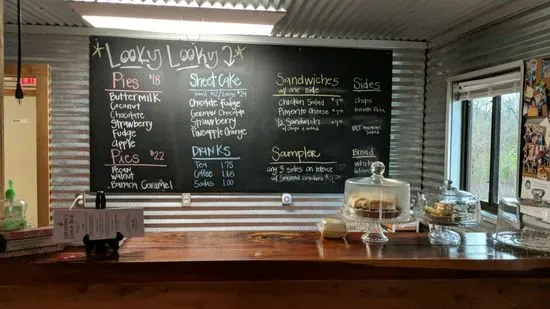 Looky Looky
Pies $18
Buttermilk
Coconut
Chocolate
Strawberry
Fudge
apple
Pies $22
Pecan
walnut
Banana Caramel
Sheet Cake
Chocolate Fudge
German Chocolate
Strawberry
Pineapple Orange
DRINKS
Tea 1.75
Coffee 1.65
Sodas 1.00
Sandwiches
w/ one side
Chicken Salad
Pimento Cheese
1/2 Sandwiches
Sampler
any 3 sides on lettuce
Sides
Chips
tomato Feta
Bread